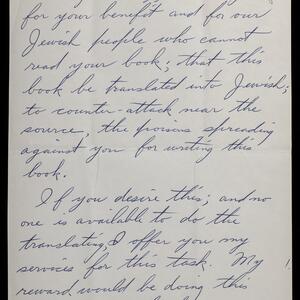 for your benefit and for our
Jewish people who cannot
read your book; that this
book be translated into Jewish;
to counter-attack near the
source, the poisons spreading
against you for writing this
book.
If you desire this; and no
one is available to do the
translating, I offer you my
services for this task. My
reward would be doing this